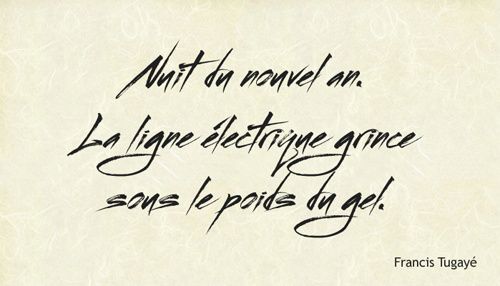 Nuit du nouvel an.
La ligne électrique grince
sous le poids du gel.
Francis Tugayé